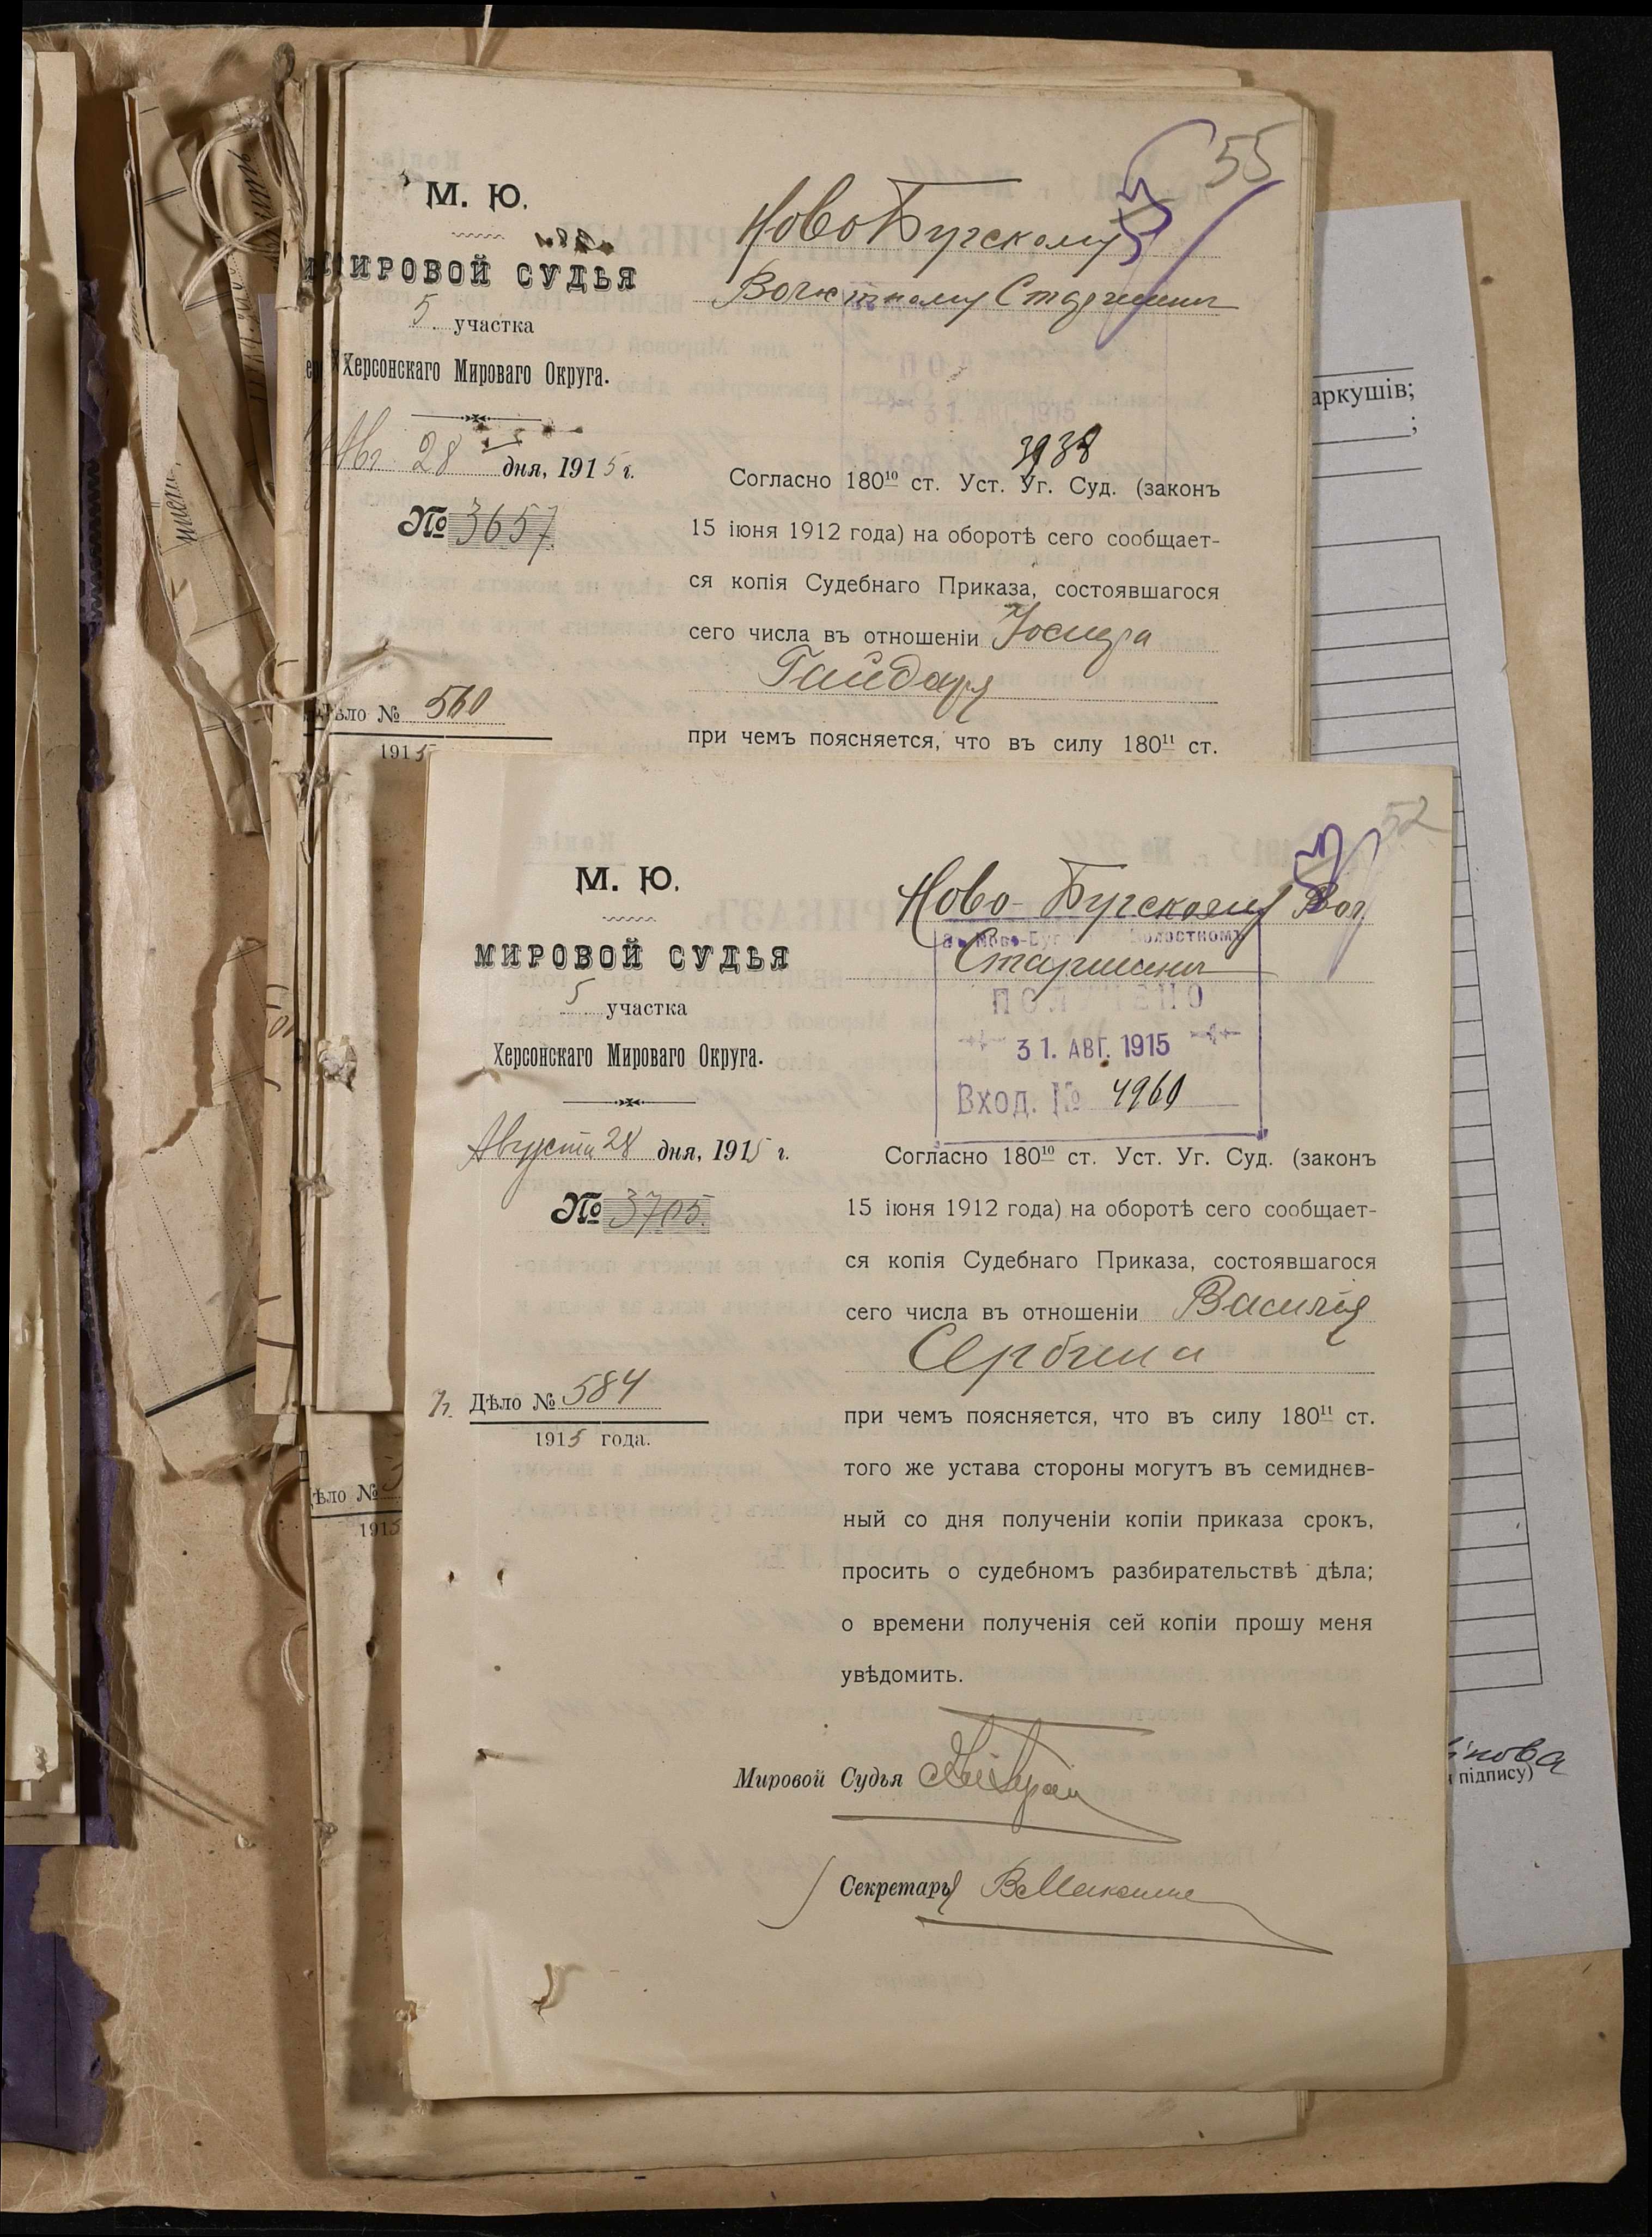 55
М. Ю.
МИРОВОЙ СУДЬЯ
5 участка
Херсонскаго Мироваго Округа.
Авг 28 дня, 1915 г.
№ 3657
Дѣло № 560
1915
Ново Бугскому
Волостному Старшинѣ
31. АВГ. 1915
3938
Согласно 180¹⁰ ст. Уст. Уг. Суд. (законъ
15 іюня 1912 года) на оборотѣ сего сообщает-
ся копія Судебнаго Приказа, состоявшагося
сего числа въ отношеніи Іосифа
Гайдаря
при чемъ поясняется, что въ силу 180¹¹ ст.
аркушів;
;
52
М. Ю.
МИРОВОЙ СУДЬЯ
5 участка
Херсонскаго Мироваго Округа.
Августа 28 дня, 1915 г.
№ 3705.
Дѣло № 584
1915 года.
Ново-Бугскому Вол.
Старшинѣ
ПОЛУЧЕНО
31. АВГ. 1915
Вход. № 4960
Согласно 180¹⁰ ст. Уст. Уг. Суд. (законъ
15 іюня 1912 года) на оборотѣ сего сообщает-
ся копія Судебнаго Приказа, состоявшагося
сего числа въ отношеніи Василія
Сербина
при чемъ поясняется, что въ силу 180¹¹ ст.
того же устава стороны могутъ въ семиднев-
ный со дня полученіи копіи приказа срокъ,
просить о судебномъ разбирательствѣ дѣла;
о времени полученія сей копіи прошу меня
увѣдомить.
Мировой Судья
Секретарь
Дѣло №
1915
підпису)